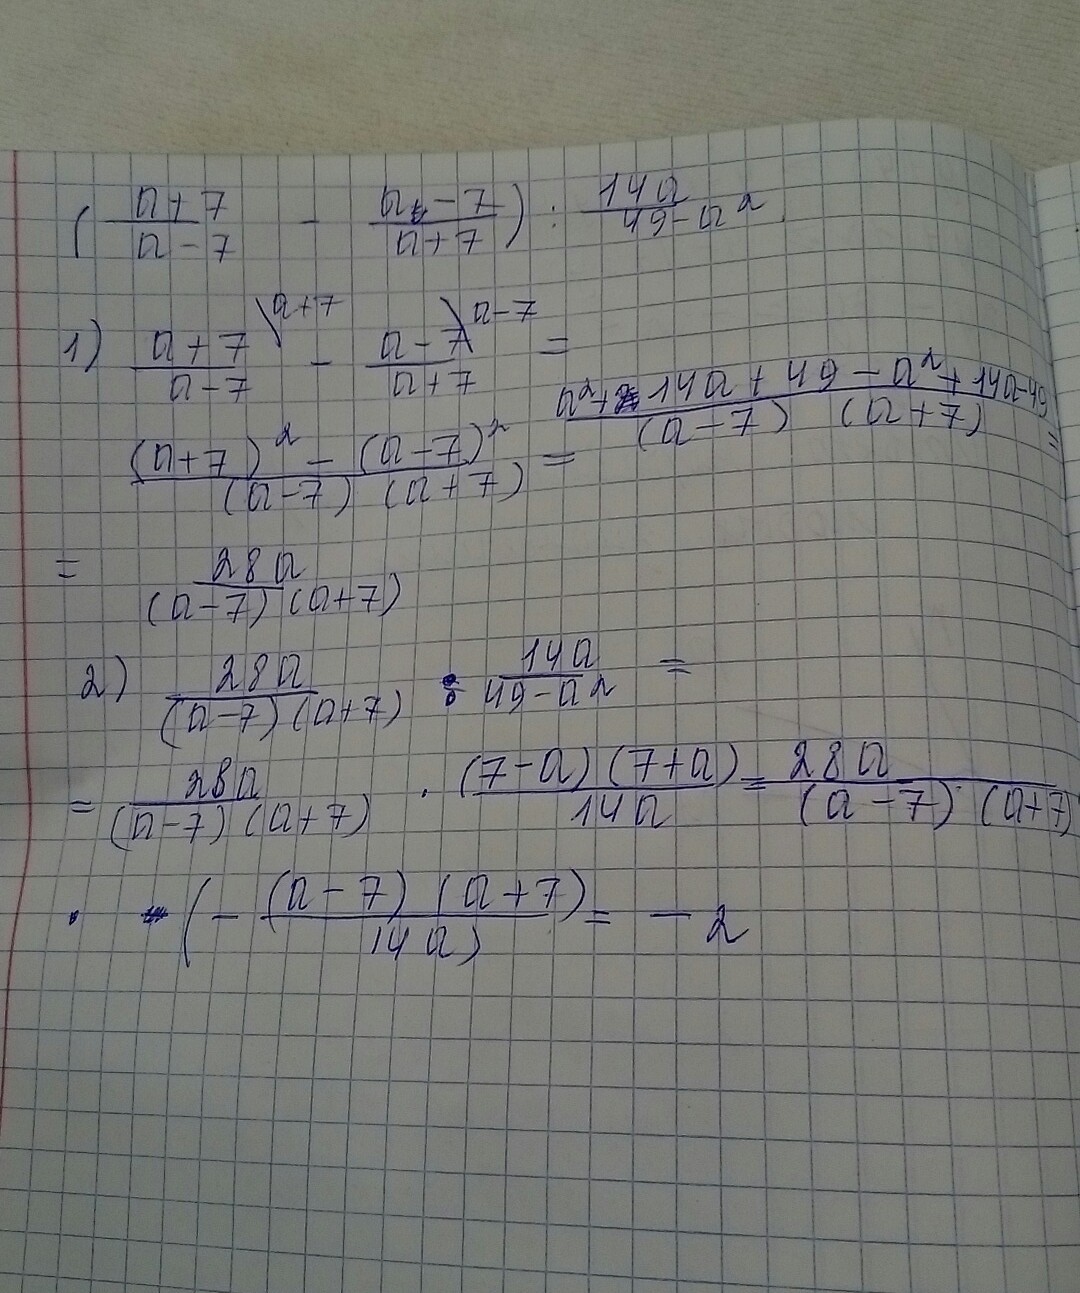 ( (a+7)/(a-7) - (a-7)/(a+7) ) : 14a/(49-a²)
1) (a+7)/(a-7) \a+7 - (a-7)/(a+7) \a-7 =
((a+7)² - (a-7)²)/((a-7) (a+7)) = (a²+14a+49-a²+14a-49)/((a-7) (a+7)) =
= 28a/((a-7)(a+7))
2) 28a/((a-7)(a+7)) : 14a/(49-a²) =
= 28a/((a-7)(a+7)) · ((7-a)(7+a))/14a = 28a/((a-7)·(a+7))
· (- ((a-7) (a+7))/14a) = -2